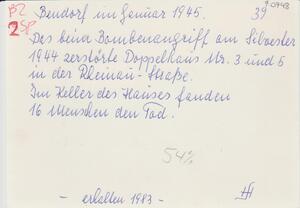 BZ
2SP
Bendorf im Januar 1945.
39
90448
Das beim Bombenangriff am Silvester
1944 zerstörte Doppelhaus Nr. 3 und 5
in der Rheinau-Straße.
Im Keller des Hauses fanden
16 Menschen den Tod.
54%
- erhalten 1983 -